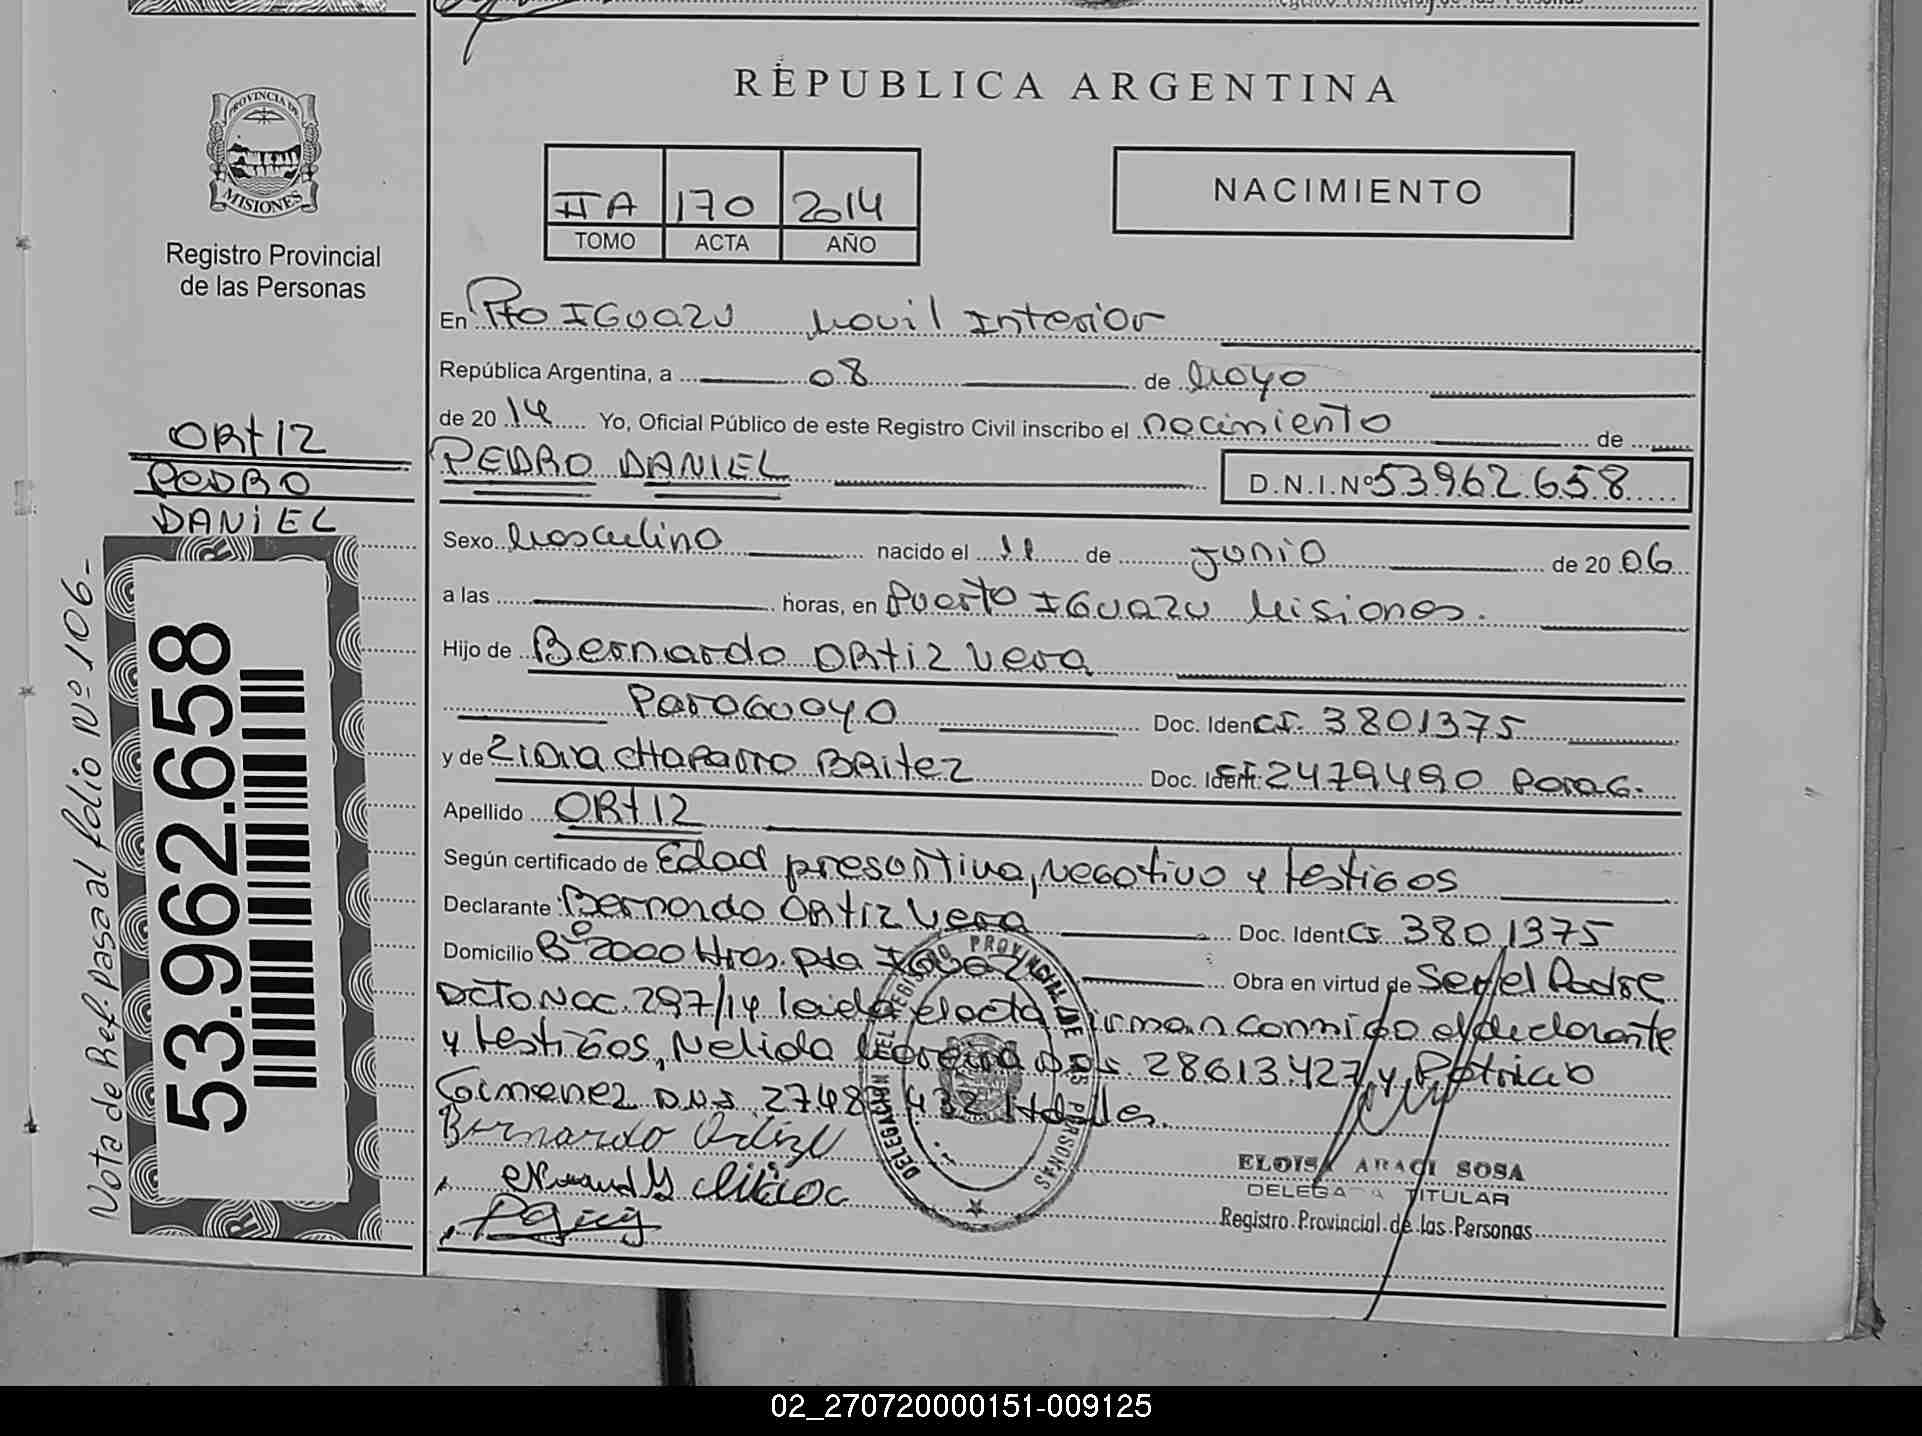 REPUBLICA ARGENTINA
PROVINCIA DE
MISIONES
Registro Provincial
de las Personas
IIA 170 2014
TOMO ACTA AÑO
NACIMIENTO
En Pto IGUAZU Movil Interior
República Argentina, a 08 de Mayo
de 2014 Yo, Oficial Público de este Registro Civil inscribo el nacimiento de
PEDRO DANIEL D.N.I.Nº 53962658
ORTIZ
PEDRO
DANIEL
Sexo Masculino nacido el 11 de Junio de 2006
a las horas, en Puerto IGUAZU Misiones.
Hijo de Bernardo ORTIZ Vera
Paraguayo Doc. Ident CI. 3801375
y de Zidia CHAPARRO BRITEZ Doc. Ident. CI 2479490 Parag.
Apellido ORTIZ
Según certificado de Edad presontiva, negativo y testigos
Declarante Bernardo ORTIZ Vera Doc. Ident. CI 3801375
Domicilio Bº 2000 Hras. Obra en virtud de Ser el Padre
DCTO NAC. 297/14 leida el acta firman conmigo el declarante
y testigos, Nelida Moreira DNI 28613427 y Patricio
Gimenez DNI
Bernardo Ortiz V
ELOISA ARACI SOSA
DELEGADA TITULAR
Registro Provincial de las Personas
53.962.658
Nota de Ref. pasa al folio Nº 106-
02_270720000151-009125